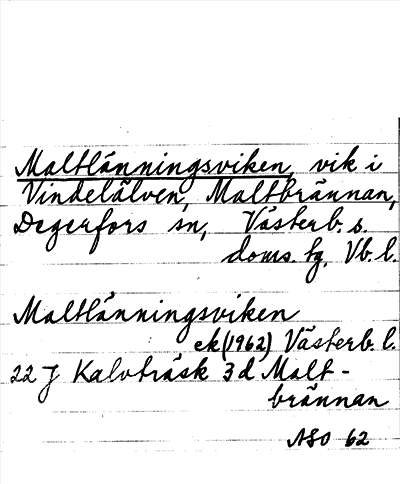 Maltlänningsviken, vik i
Vindelälven, Maltbrännan,
Degerfors sn, Västerb. s.
doms. tg, Vb. l.
Maltlänningsviken
ek (1962) Västerb. l.
22 J Kalvträsk 3 d Malt-
brännan
ASO 62